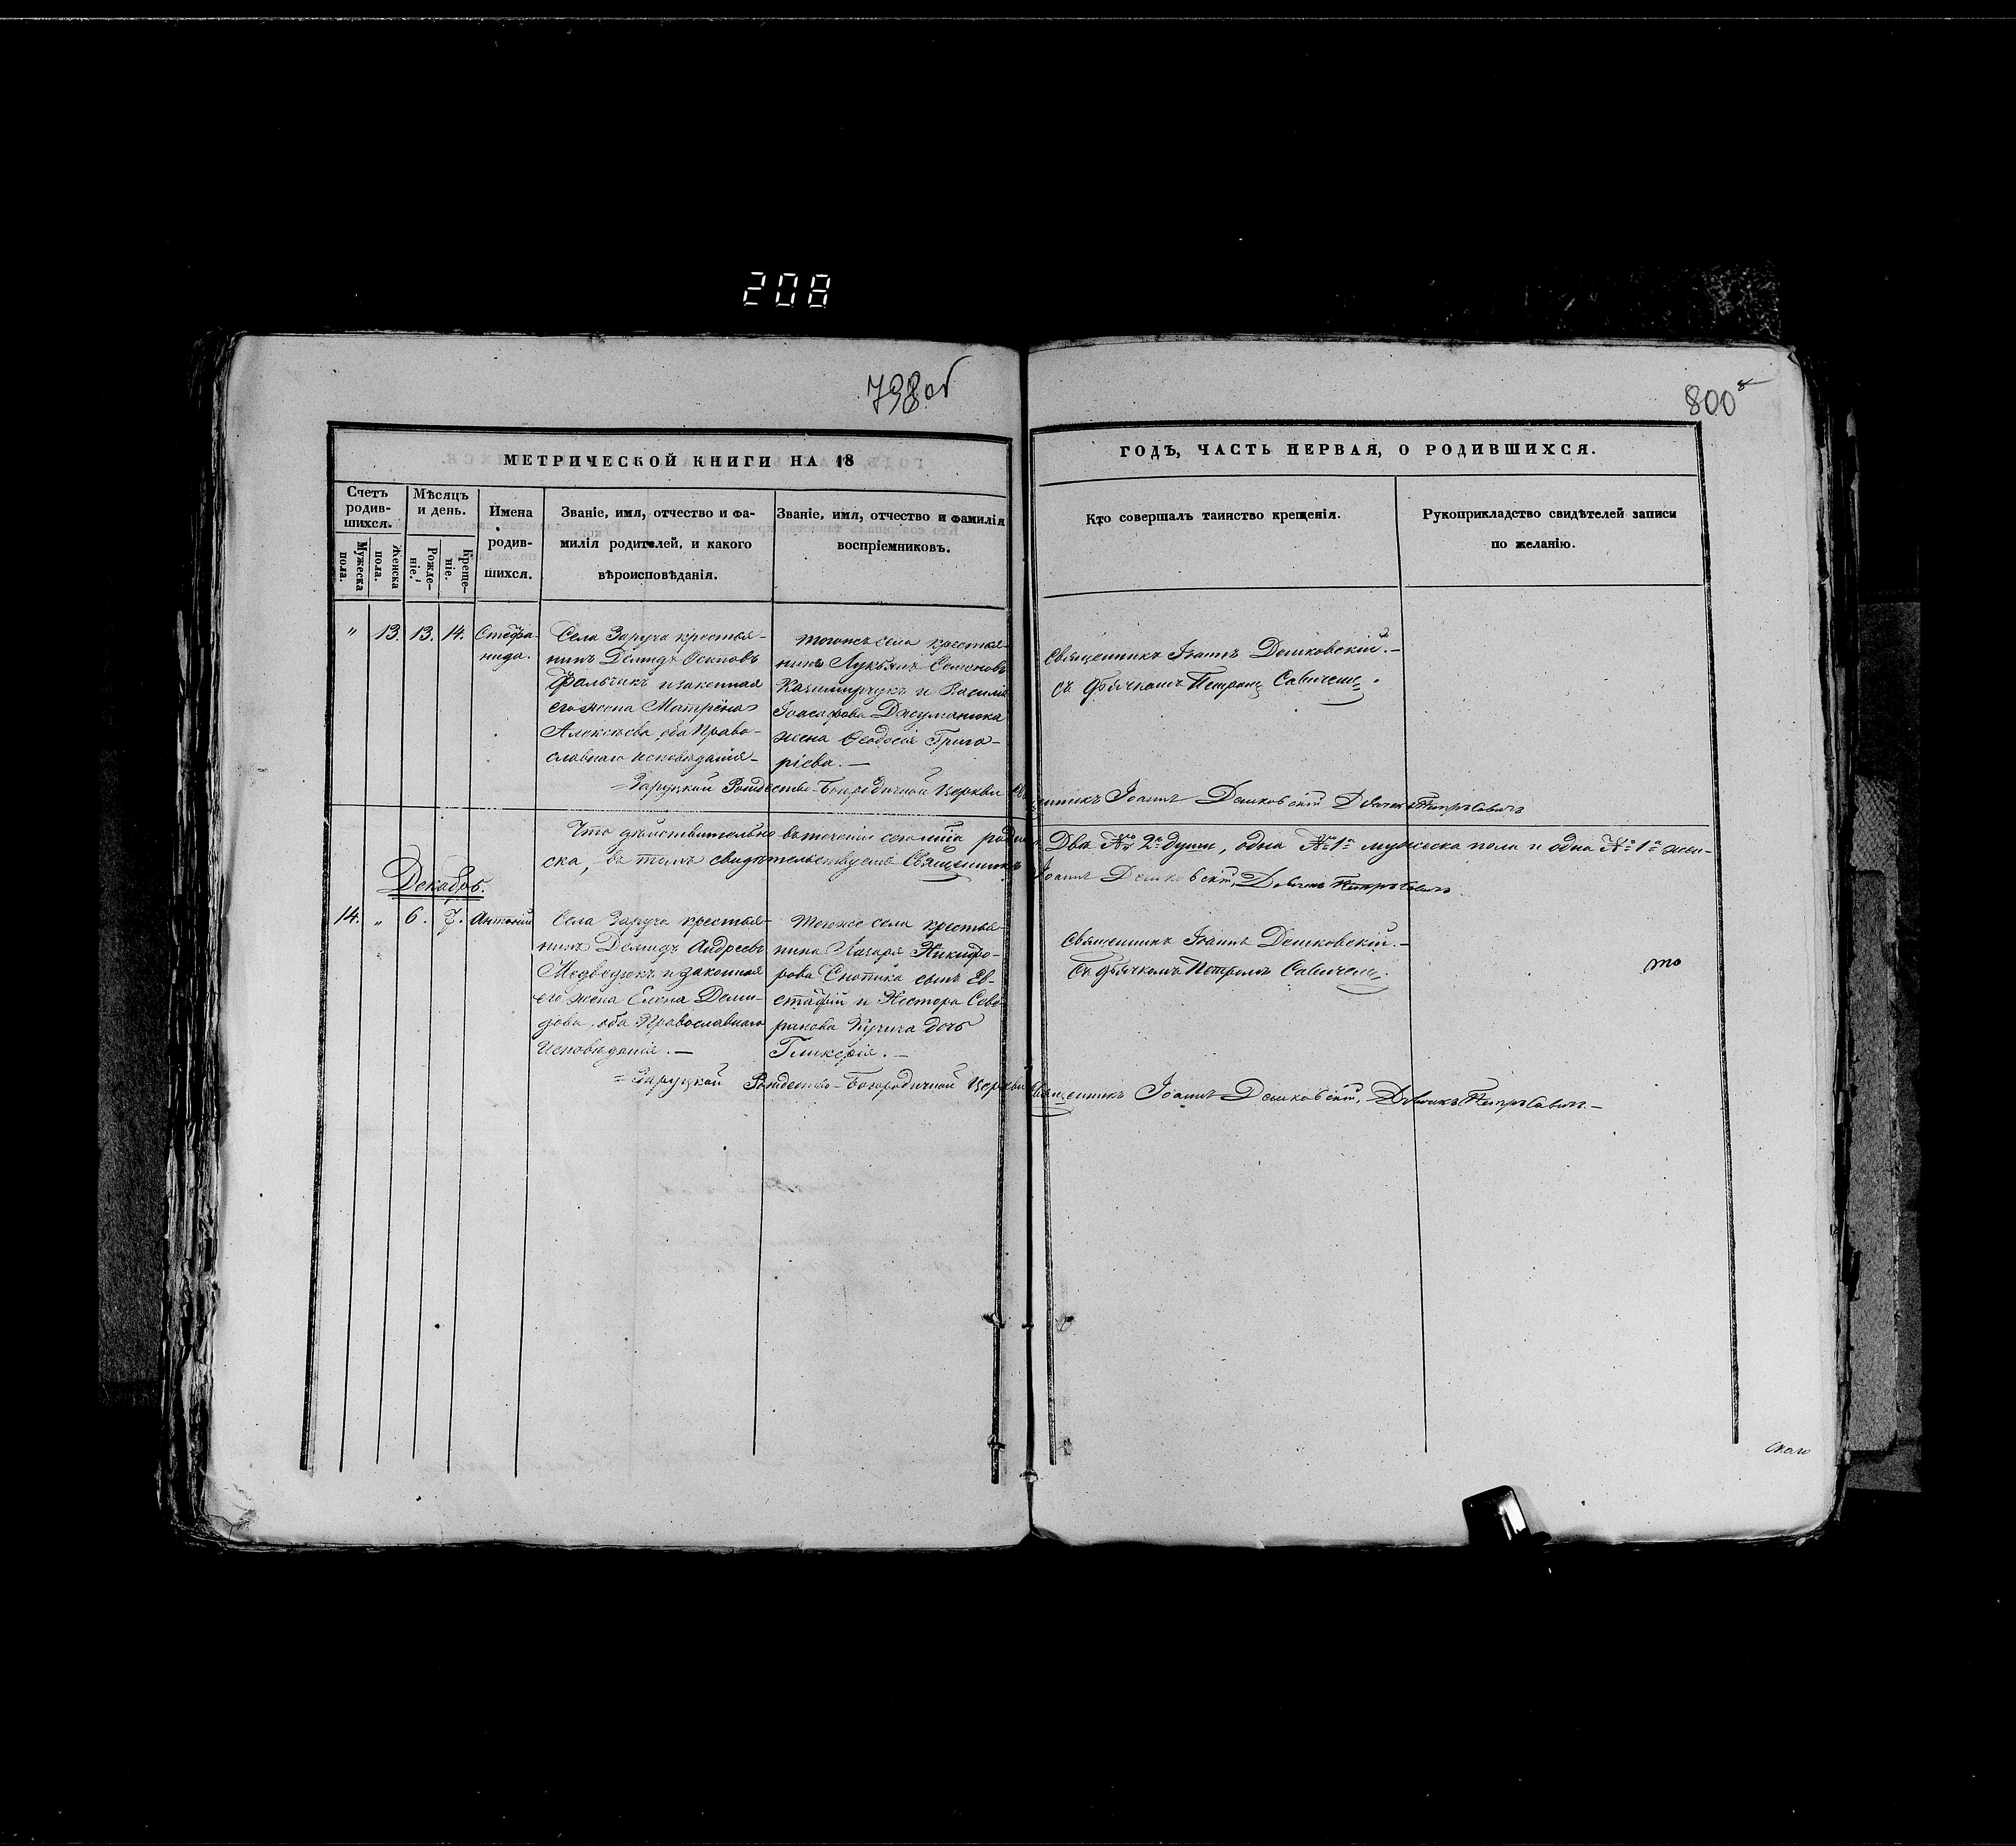 208
798 об
800
МЕТРИЧЕСКОЙ КНИГИ НА 18
ГОДЪ, ЧАСТЬ ПЕРВАЯ, О РОДИВШИХСЯ.
Счетъ родив-
шихся.
Мужеска пола.
Женска пола.
Мѣсяцъ и день.
Рожде-
ніе.
Креще-
ніе.
Имена
родив-
шихся.
Званіе, имя, отчество и фа-
милія родителей, и какого
вѣроисповѣданія.
Званіе, имя, отчество и фамилія
воспріемниковъ.
Кто совершалъ таинство крещенія.
Рукоприкладство свидѣтелей записи
по желанію.
" 13. 13. 14.
Стефа-
нида.
Села Заруча крестья-
нинъ Демидъ Осиповъ
Фальчикъ и законная
его жена Матрёна
Алексѣева, оба Право-
славнаго исповѣданія
Тогоже села крестья-
нинъ Лукьянъ Семеновъ
Казимирчукъ и Василія
Іоасафова Джуманюка
жена Ѳеодосія Григо-
ріева. —
Священникъ Іоаннъ Дешковскій. —
съ дьячкомъ Петромъ Савичемъ.
= Заруцкой Рождество-Богородичной Церкви Священникъ Іоаннъ Дешковскій Дьячекъ Петръ Савичъ
Что дѣйствительно въ теченіи сего м͠ца родилось Двѣ № 2 души, одна № 1 мужеска пола и одна № 1 жен-
ска, въ томъ свидѣтельствуемъ Священникъ Іоаннъ Дешковскій, Дьячекъ Петръ Савичъ
Декабрь.
14. " 6. 7. Антоній
Села Заруча крестья-
нинъ Демидъ Андреевъ
Медведюкъ и законная
его жена Елена Деми-
дова, оба Православнаго
Исповѣданія. —
Тогоже села крестья-
нина Лазаря Никифо-
рова Снопика сынъ Ев-
стафій и Нестора Севе-
рянова Кучича дочь
Гликерія. —
Священникъ Іоаннъ Дешковскій. —
съ дьячкомъ Петромъ Савичемъ.
то
= Заруцкой Рождество-Богородичной Церкви Священникъ Іоаннъ Дешковскій, Дьячекъ Петръ Савичъ. —